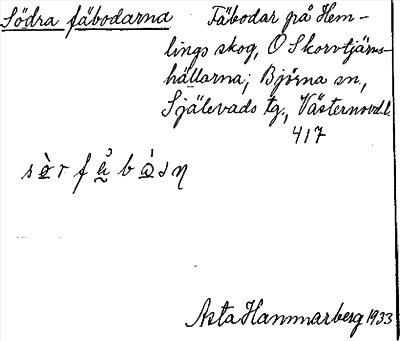 Södra fäbodarna Fäbodar på Hem-
lings skog, O Skorvtjärns-
hällarna; Björna sn,
Själevads tg., Västernorrl. l.
417
Asta Hammarberg 1933